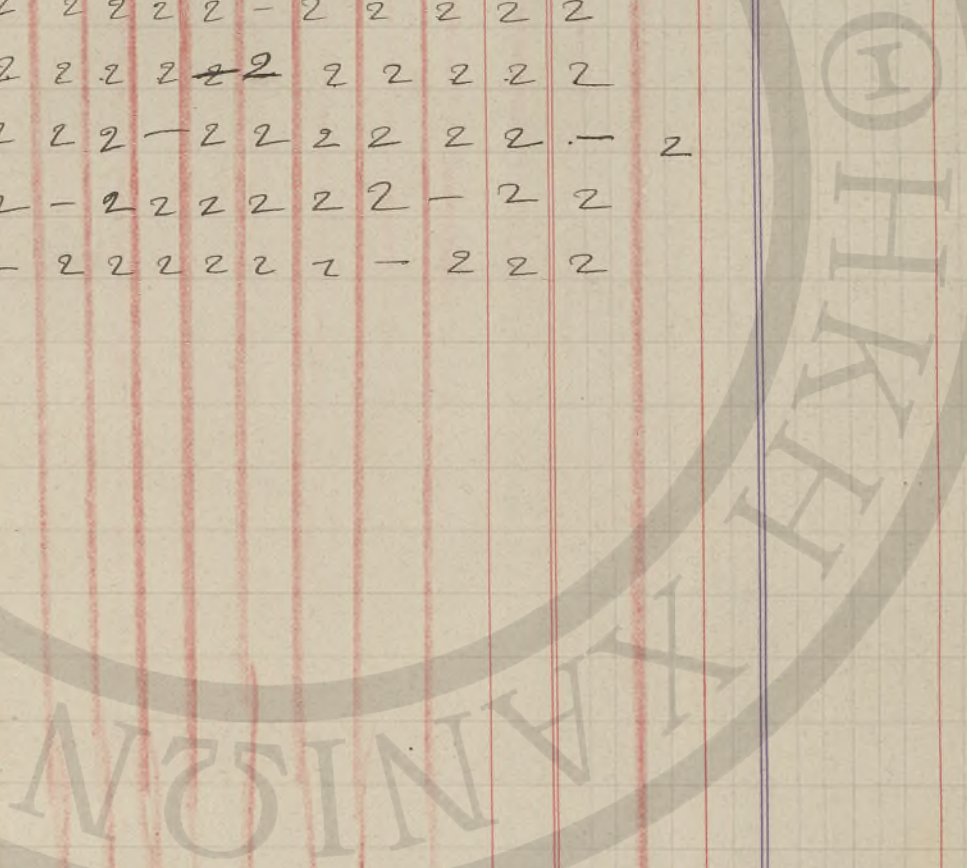 2 2 2 2 2 - 2 2 2 2 2
2 2 2 2 2 2 2 2 2 2 2
2 2 2 - 2 2 2 2 2 2 - 2
2 - 2 2 2 2 2 2 - 2 2
- 2 2 2 2 2 2 - 2 2 2
ΘΗΚΗ ΧΑΝΙΩΝ